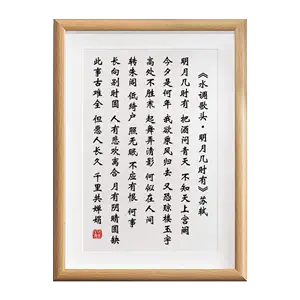 《水调歌头·明月几时有》苏轼
明月几时有 把酒问青天 不知天上宫阙
今夕是何年 我欲乘风归去 又恐琼楼玉宇
高处不胜寒 起舞弄清影 何似在人间
转朱阁 低绮户 照无眠 不应有恨 何事
长向别时圆 人有悲欢离合 月有阴晴圆缺
此事古难全 但愿人长久 千里共婵娟